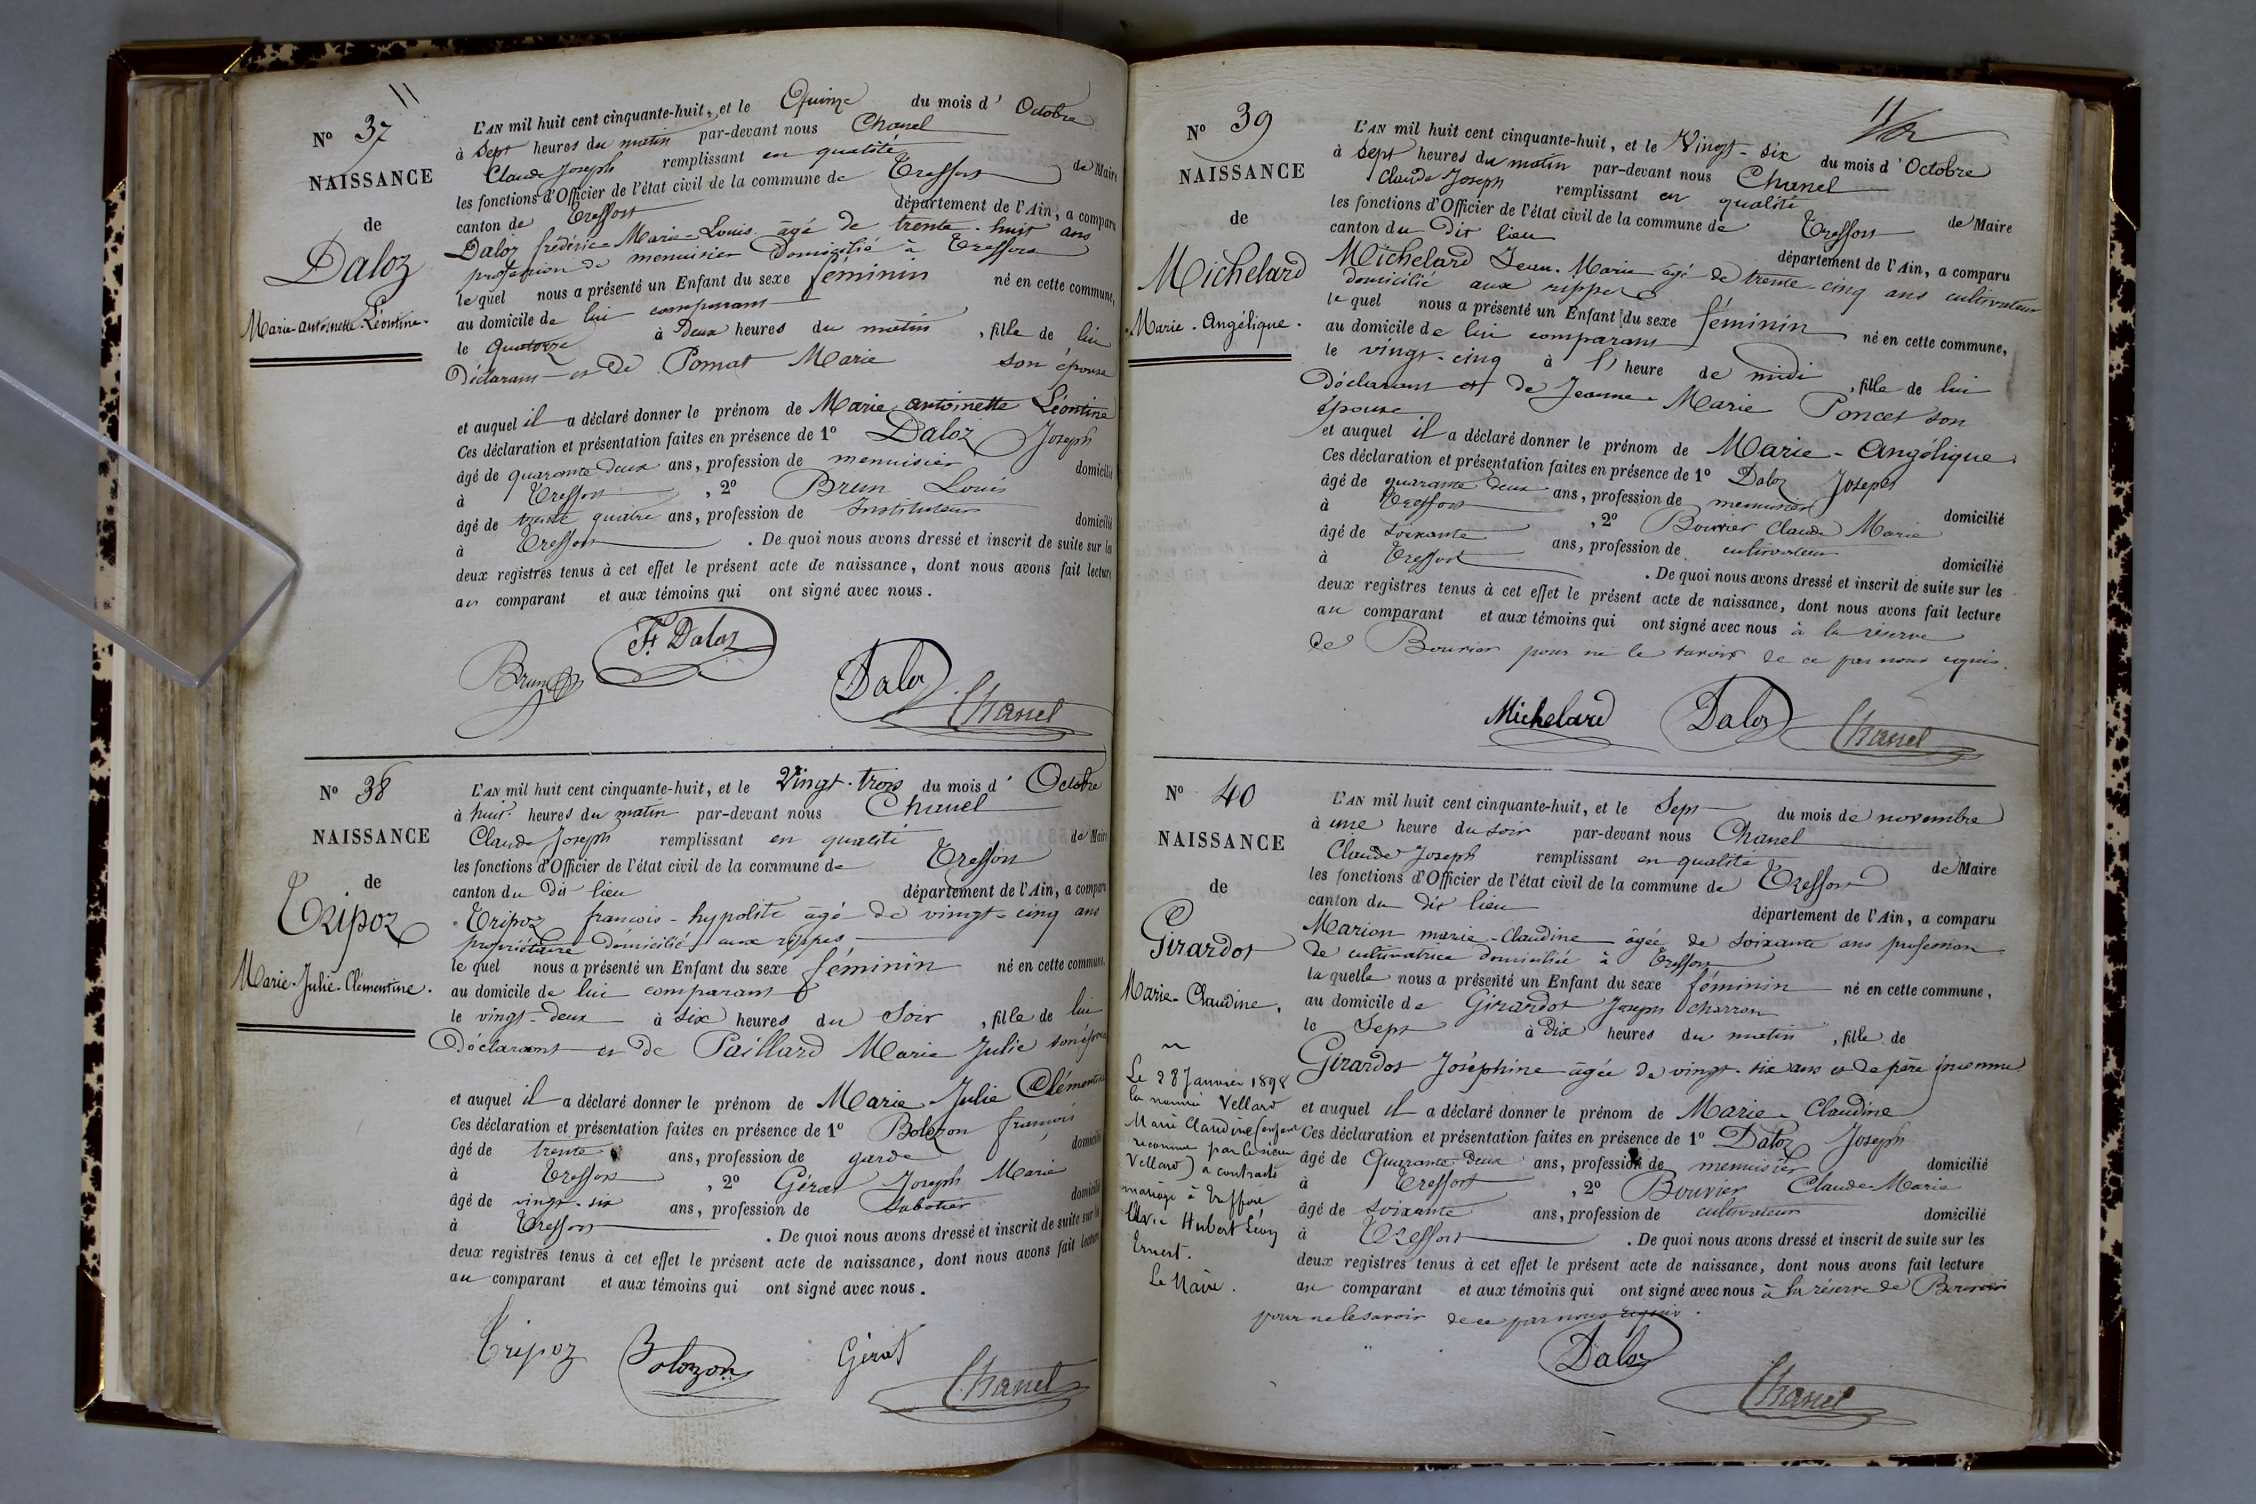 11
N° 37
NAISSANCE
de
Daloz
Marie-antoinette-Léontine.
L'AN mil huit cent cinquante-huit, et le Quinze du mois d' Octobre
à sept heures du matin par-devant nous Chanel
Claude Joseph remplissant en qualité de Maire
les fonctions d'Officier de l'état civil de la commune de Treffort
canton de Treffort département de l'Ain, a comparu
Daloz frédéric-Marie-Louis âgé de trente-huit ans
profession de menuisier domicilié à Treffort
lequel nous a présenté un Enfant du sexe féminin né en cette commune,
au domicile de lui comparant
le Quatorze à Deux heures du matin, fille de lui
Déclarant et de Pomat Marie son épouse
et auquel il a déclaré donner le prénom de Marie antoinette Léontine
Ces déclaration et présentation faites en présence de 1° Daloz Joseph
âgé de quarante deux ans, profession de menuisier domicilié
à Treffort, 2° Brun Louis
âgé de trente quatre ans, profession de Instituteur domicilié
à Treffort. De quoi nous avons dressé et inscrit de suite sur les
deux registres tenus à cet effet le présent acte de naissance, dont nous avons fait lecture
au comparant et aux témoins qui ont signé avec nous.
Brun
Ft Daloz
Daloz
Chanel
N° 38
NAISSANCE
de
Tripoz
Marie-Julie-Clémentine.
L'AN mil huit cent cinquante-huit, et le Vingt-trois du mois d' Octobre
à huit heures du matin par-devant nous Chanel
Claude Joseph remplissant en qualité de Maire
les fonctions d'Officier de l'état civil de la commune de Treffort
canton du Dit lieu département de l'Ain, a comparu
Tripoz francois-hypolite âgé de vingt-cinq ans
propriétaire domicilié aux rippes
lequel nous a présenté un Enfant du sexe féminin né en cette commune,
au domicile de lui comparant
le vingt-deux à six heures du Soir, fille de lui
Déclarant et de Paillard Marie Julie son épouse
et auquel il a déclaré donner le prénom de Marie Julie Clémentine
Ces déclaration et présentation faites en présence de 1° Bolozon francois
âgé de trente ans, profession de garde domicilié
à Treffort, 2° Gérat Joseph Marie
âgé de vingt-six ans, profession de Sabotier domicilié
à Treffort. De quoi nous avons dressé et inscrit de suite sur les
deux registres tenus à cet effet le présent acte de naissance, dont nous avons fait lecture
au comparant et aux témoins qui ont signé avec nous.
Tripoz
Bolozon
Gérat
Chanel
11
N° 39
NAISSANCE
de
Michelard
Marie-Angélique.
L'AN mil huit cent cinquante-huit, et le Vingt-six du mois d' Octobre
à sept heures du matin par-devant nous Chanel
Claude Joseph remplissant en qualité de Maire
les fonctions d'Officier de l'état civil de la commune de Treffort
canton du Dit lieu département de l'Ain, a comparu
Michelard Jean-Marie âgé de trente-cinq ans cultivateur
domicilié aux rippes
lequel nous a présenté un Enfant du sexe féminin né en cette commune,
au domicile de lui comparant
le vingt-cinq à l' heure de midi, fille de lui
Déclarant et de Jeanne-Marie Poncet son
épouse
et auquel il a déclaré donner le prénom de Marie-Angélique
Ces déclaration et présentation faites en présence de 1° Daloz Joseph
âgé de quarante deux ans, profession de menuisier domicilié
à Treffort, 2° Bouvier Claude Marie
âgé de soixante ans, profession de cultivateur domicilié
à Treffort. De quoi nous avons dressé et inscrit de suite sur les
deux registres tenus à cet effet le présent acte de naissance, dont nous avons fait lecture
au comparant et aux témoins qui ont signé avec nous à la réserve
de Bouvier pour ne le savoir de ce par nous requis.
Michelard
Daloz
Chanel
N° 40
NAISSANCE
de
Girardot
Marie-Claudine.
Le 28 Janvier 1898
la nommée Vellard
Marie Claudine (enfant
reconnue par le sieur
Vellard) a contracté
mariage à Treffort
avec Hubert Léon
Ernest.
Le Maire.
L'AN mil huit cent cinquante-huit, et le Sept du mois de novembre
à une heure du soir par-devant nous Chanel
Claude Joseph remplissant en qualité de Maire
les fonctions d'Officier de l'état civil de la commune de Treffort
canton du dit lieu département de l'Ain, a comparu
Marion marie-Claudine âgée de soixante ans profession
de cultivatrice domiciliée à Treffort
laquelle nous a présenté un Enfant du sexe féminin né en cette commune,
au domicile de Girardot Joseph charron
le Sept à Dix heures du matin, fille de
Girardot Joséphine âgée de vingt-six ans et de père inconnu
et auquel il a déclaré donner le prénom de Marie-Claudine
Ces déclaration et présentation faites en présence de 1° Daloz Joseph
âgé de Quarante Deux ans, profession de menuisier domicilié
à Treffort, 2° Bouvier Claude-Marie
âgé de soixante ans, profession de cultivateur domicilié
à Treffort. De quoi nous avons dressé et inscrit de suite sur les
deux registres tenus à cet effet le présent acte de naissance, dont nous avons fait lecture
au comparant et aux témoins qui ont signé avec nous à la réserve de Bouvier
pour ne le savoir de ce par nous requis.
Daloz
Chanel